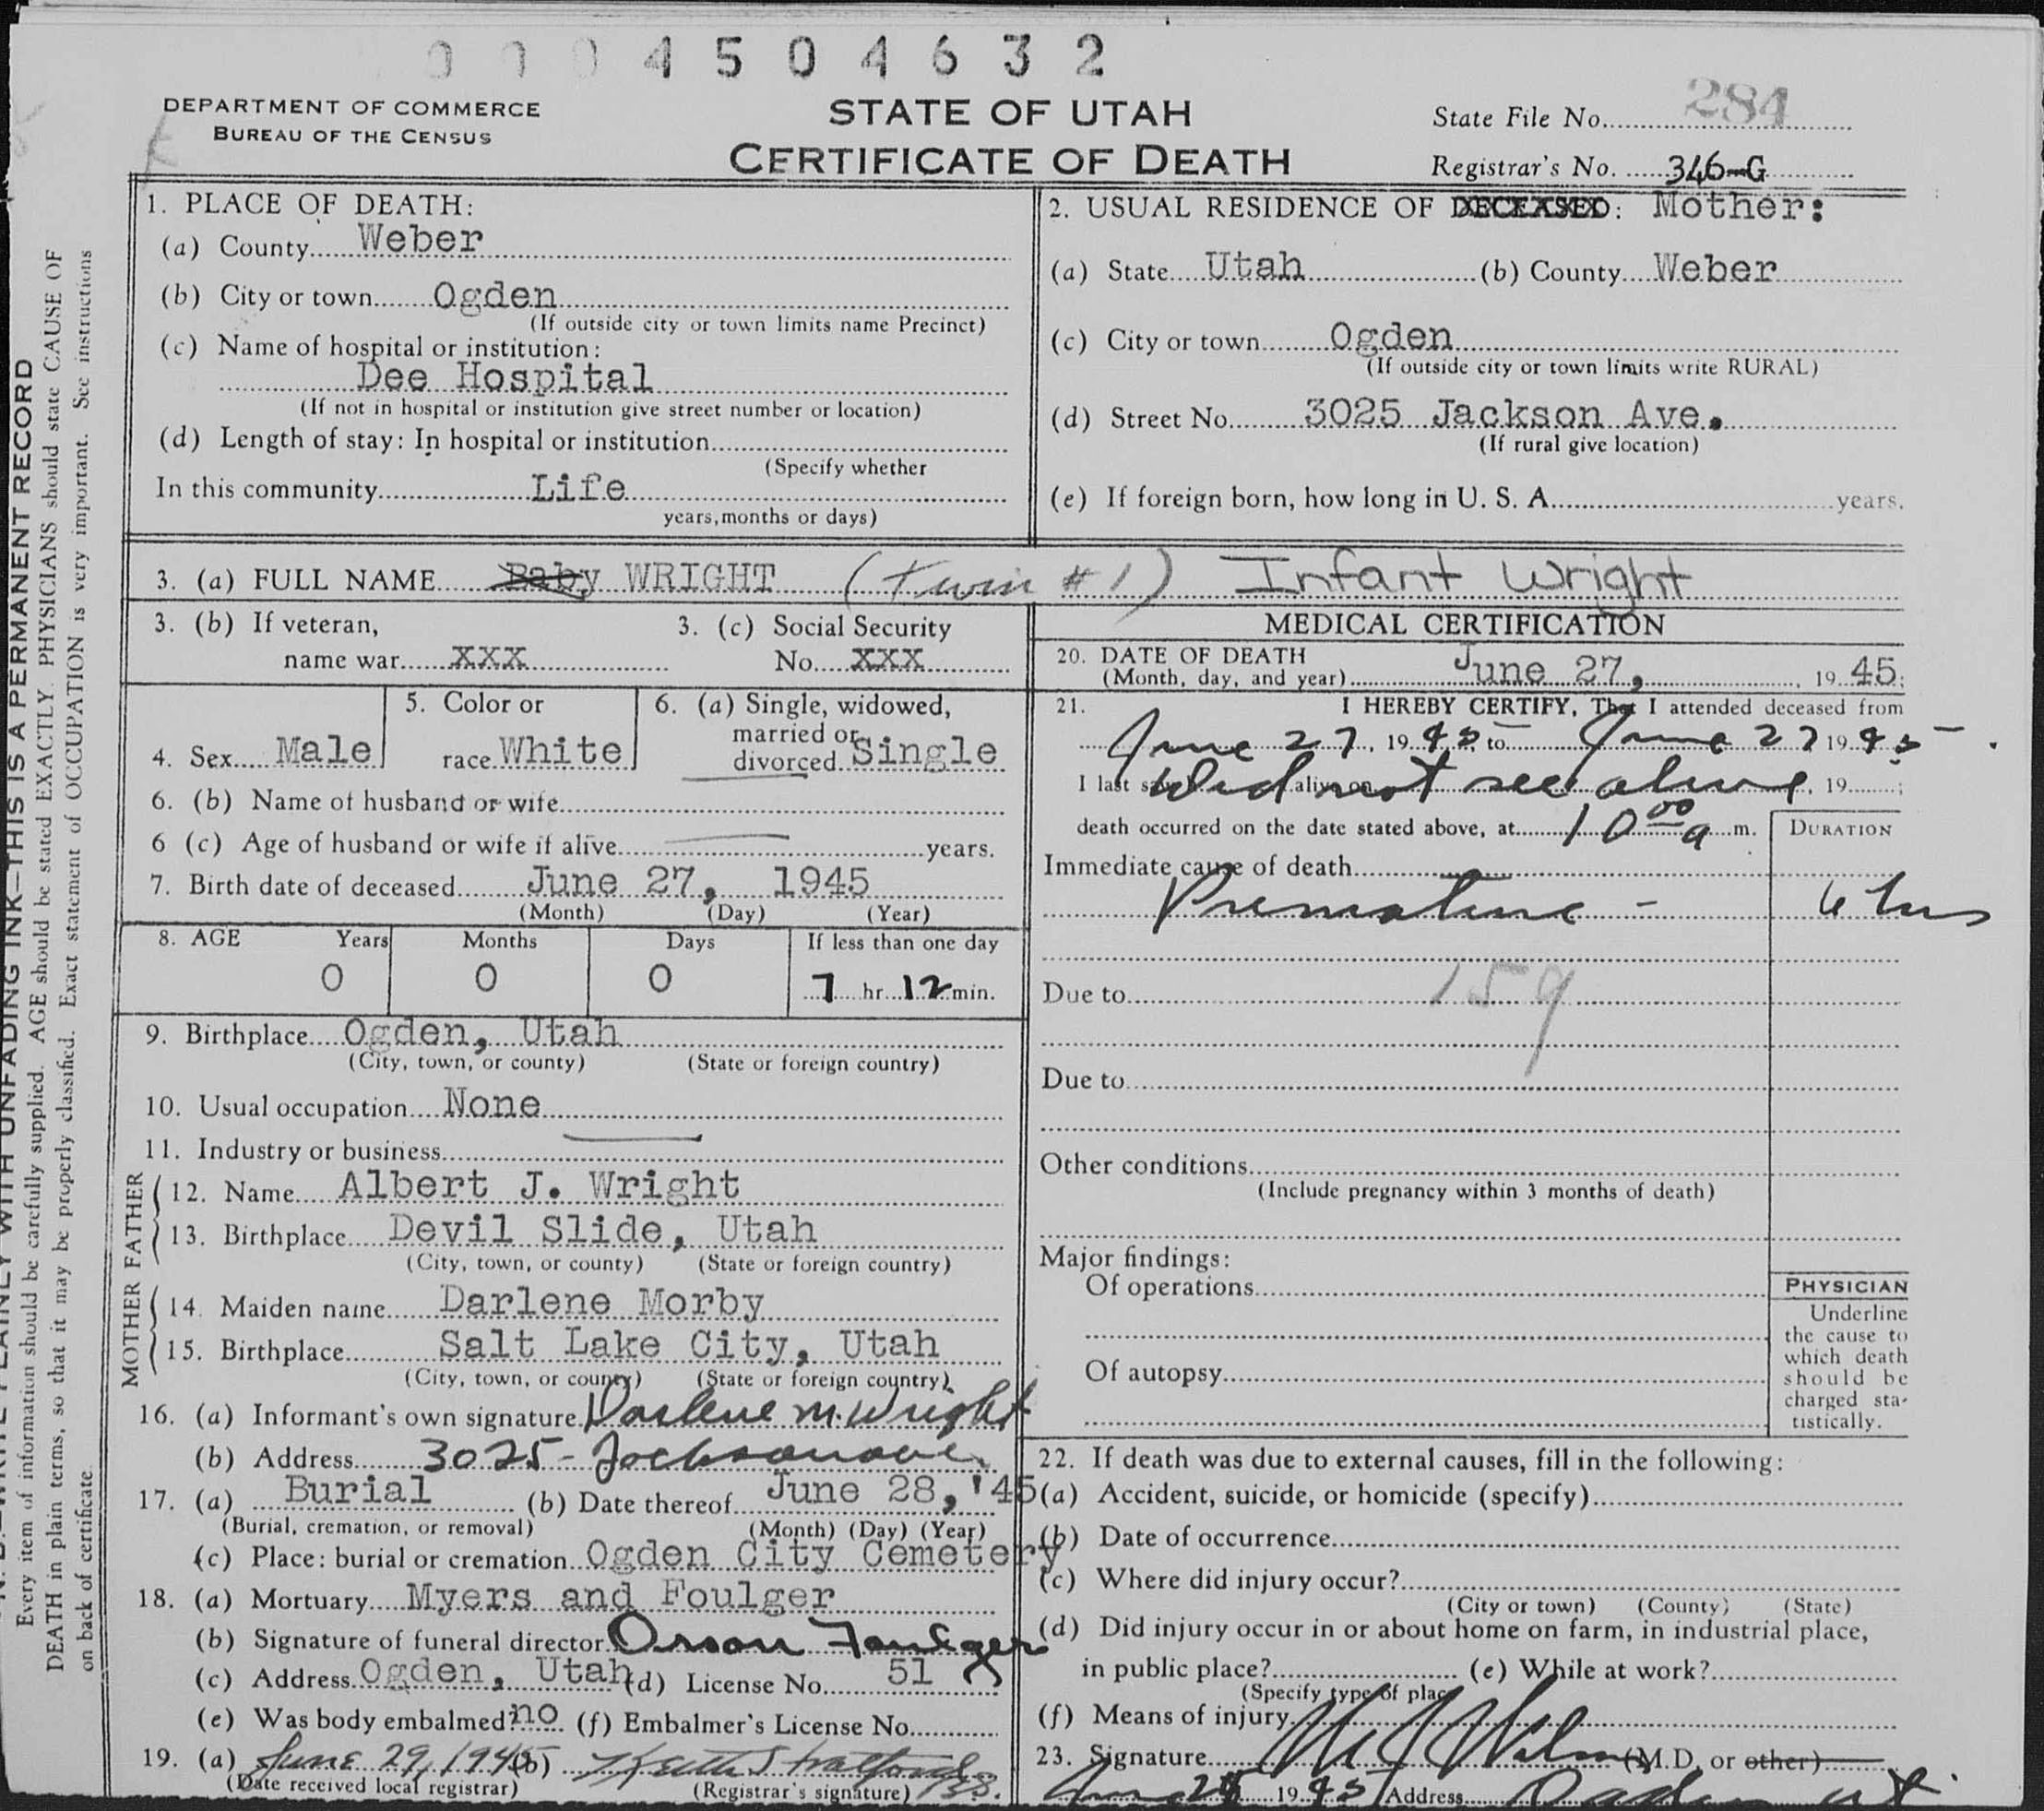 0004504632
DEPARTMENT OF COMMERCE
BUREAU OF THE CENSUS
STATE OF UTAH
CERTIFICATE OF DEATH
State File No. 284
Registrar's No. 346-G
1. PLACE OF DEATH:
(a) County Weber
(b) City or town Ogden
(If outside city or town limits name Precinct)
(c) Name of hospital or institution:
Dee Hospital
(If not in hospital or institution give street number or location)
(d) Length of stay: In hospital or institution
(Specify whether
In this community Life
years, months or days)
2. USUAL RESIDENCE OF DECEASED: Mother:
(a) State Utah (b) County Weber
(c) City or town Ogden
(If outside city or town limits write RURAL)
(d) Street No. 3025 Jackson Ave.
(If rural give location)
(e) If foreign born, how long in U. S. A. years.
3. (a) FULL NAME Baby WRIGHT (twin #1) Infant Wright
3. (b) If veteran,
name war XXX
3. (c) Social Security
No. XXX
4. Sex Male
5. Color or
race White
6. (a) Single, widowed,
married or
divorced Single
6. (b) Name of husband or wife
6 (c) Age of husband or wife if alive years.
7. Birth date of deceased June 27, 1945
(Month) (Day) (Year)
8. AGE Years Months Days If less than one day
0 0 0 7 hr. 12 min.
9. Birthplace Ogden, Utah
(City, town, or county) (State or foreign country)
10. Usual occupation None
11. Industry or business
FATHER
12. Name Albert J. Wright
13. Birthplace Devil Slide, Utah
(City, town, or county) (State or foreign country)
MOTHER
14. Maiden name Darlene Morby
15. Birthplace Salt Lake City, Utah
(City, town, or county) (State or foreign country)
16. (a) Informant's own signature Darlene M. Wright
(b) Address 3025 - Jackson ave
17. (a) Burial (b) Date thereof June 28, '45
(Burial, cremation, or removal) (Month) (Day) (Year)
(c) Place: burial or cremation Ogden City Cemetery
18. (a) Mortuary Myers and Foulger
(b) Signature of funeral director Orson Foulger
(c) Address Ogden, Utah (d) License No. 51
(e) Was body embalmed? no (f) Embalmer's License No.
19. (a) June 29, 1945 (b) Keith Stratford
(Date received local registrar) (Registrar's signature)
MEDICAL CERTIFICATION
20. DATE OF DEATH
(Month, day, and year) June 27, 1945;
21. I HEREBY CERTIFY, That I attended deceased from
June 27, 1945 to June 27 1945
I last s alive on Did not see alive, 19 ;
death occurred on the date stated above, at 10 00 a m.
DURATION
Immediate cause of death
Premature - 6 hrs
Due to 159
Due to
Other conditions
(Include pregnancy within 3 months of death)
Major findings:
Of operations
Of autopsy
PHYSICIAN
Underline
the cause to
which death
should be
charged sta-
tistically.
22. If death was due to external causes, fill in the following:
(a) Accident, suicide, or homicide (specify)
(b) Date of occurrence
(c) Where did injury occur?
(City or town) (County) (State)
(d) Did injury occur in or about home on farm, in industrial place,
in public place? (e) While at work?
(Specify type of place
(f) Means of injury
23. Signature (M.D. or other)
1945 Address Ogden ut.
THIS IS A PERMANENT RECORD
Every item of information should be carefully supplied. AGE should be stated EXACTLY. PHYSICIANS should state CAUSE OF
DEATH in plain terms, so that it may be properly classified. Exact statement of OCCUPATION is very important. See instructions
on back of certificate.